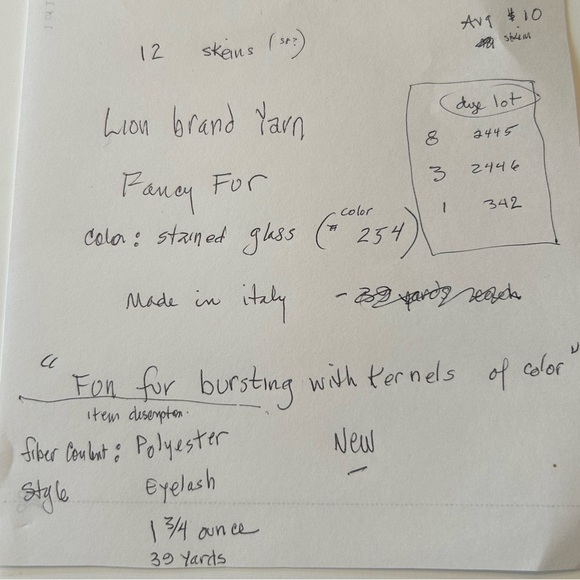 Avg $10
skein
12 skeins (sp?)
Lion brand Yarn
dye lot
8 2445
3 2446
1 342
Fancy Fur
color: stained glass (color # 254)
Made in italy - 39 yards
"Fun fur bursting with kernels of color"
item description.
fiber Content: Polyester
New
Style Eyelash
1 3/4 ounce
39 Yards